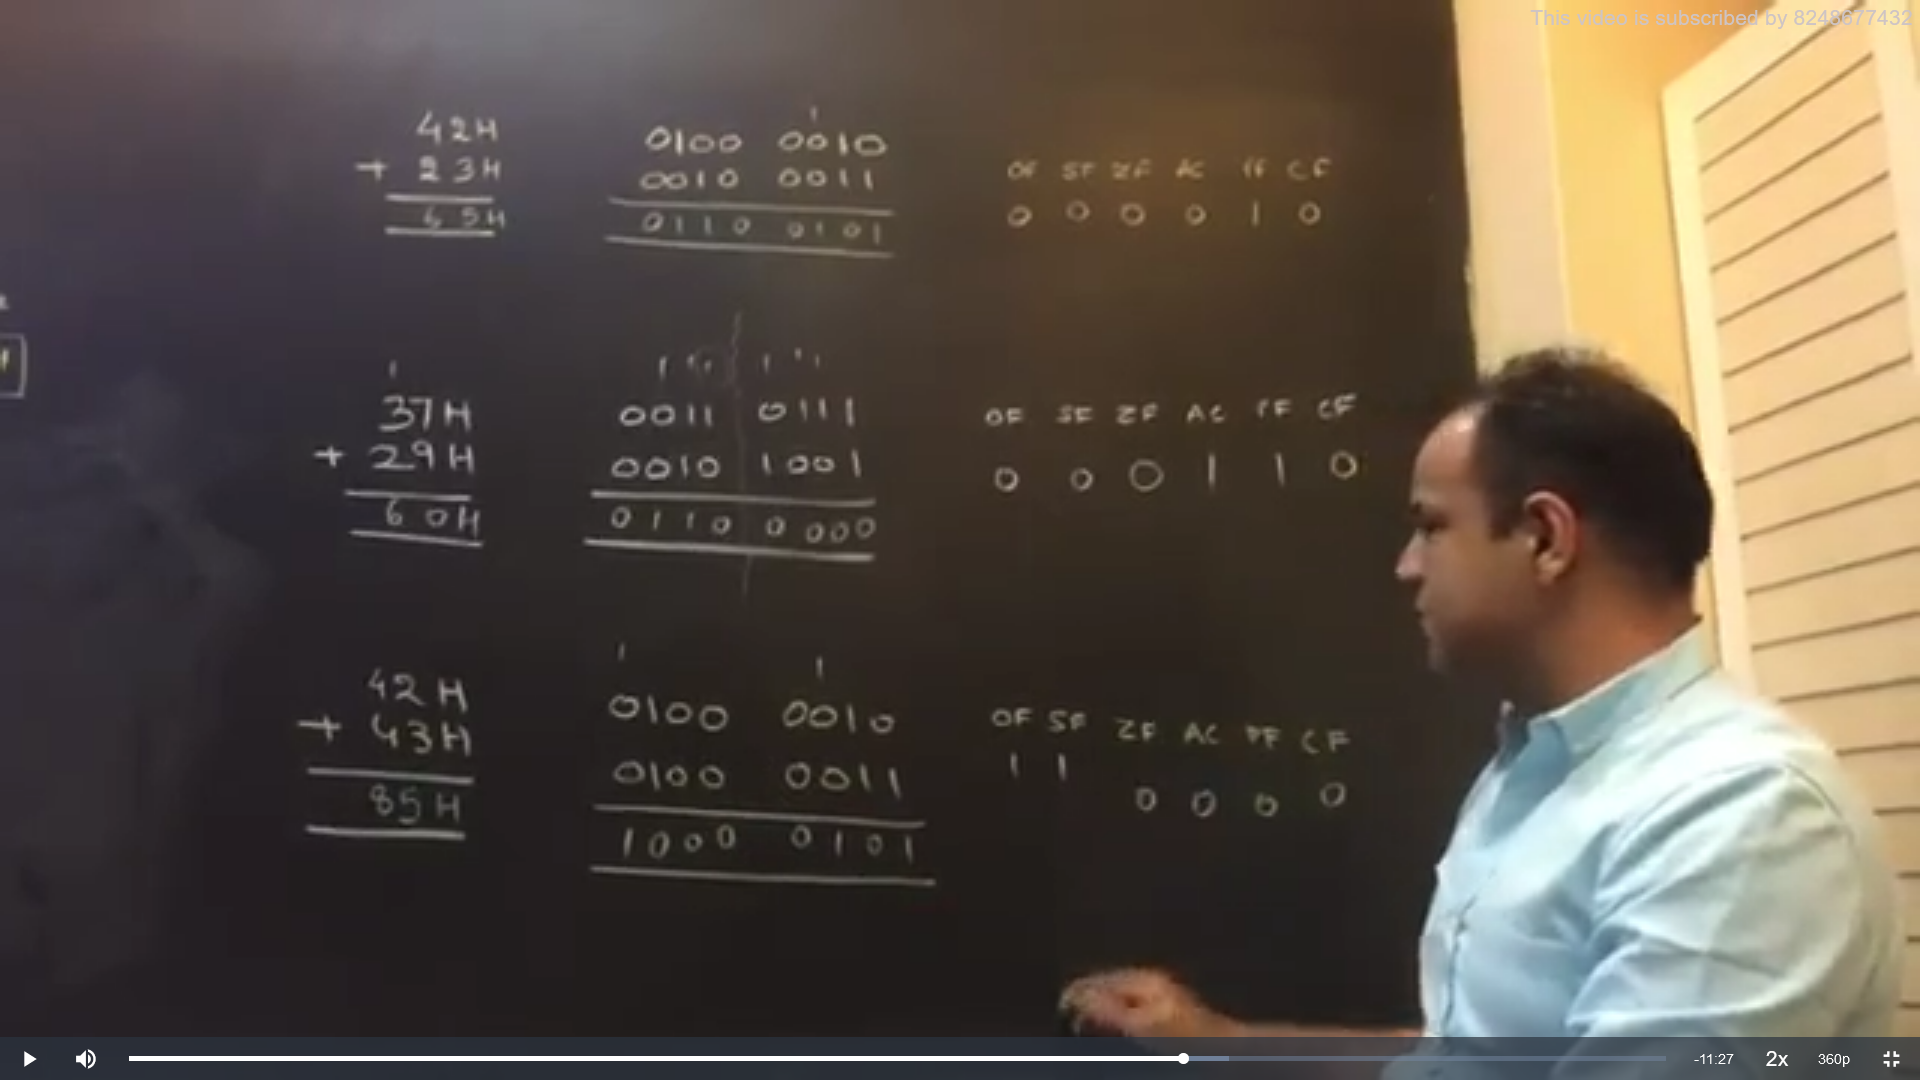 This video is subscribed by 8248677432
42H
+ 23H
65H
1
0100 0010
0010 0011
0110 0101
OF SF ZF AC PF CF
0 0 0 0 1 0
1
37H
+ 29H
60H
1 1 1 1 1 1
0011 0111
0010 1001
0110 0000
OF SF ZF AC PF CF
0 0 0 1 1 0
42H
+ 43H
85H
1 1
0100 0010
0100 0011
1000 0101
OF SF ZF AC PF CF
1 1 0 0 0 0
-11:27 2x 360p